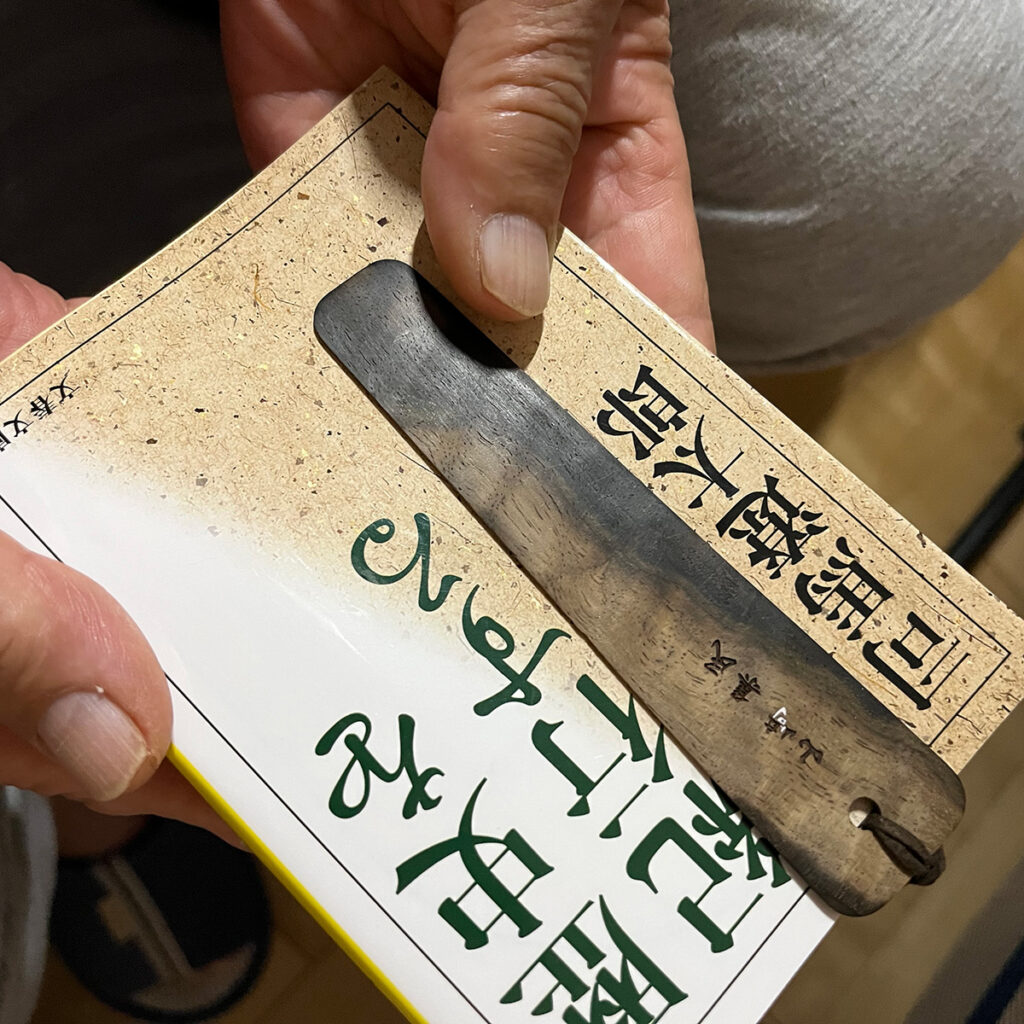 歴史を
紀行する
司馬遼太郎
文春文庫
山崎